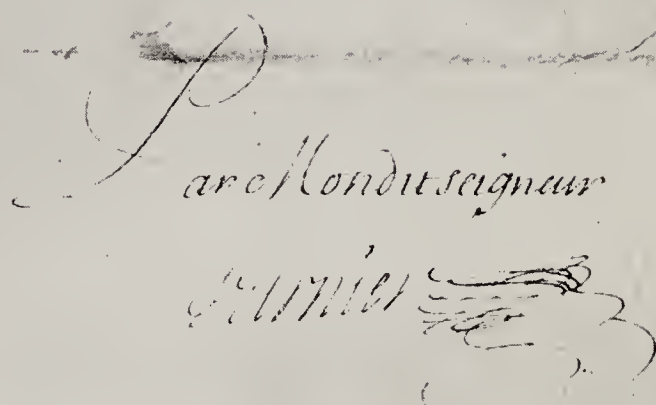 Par Monditseigneur